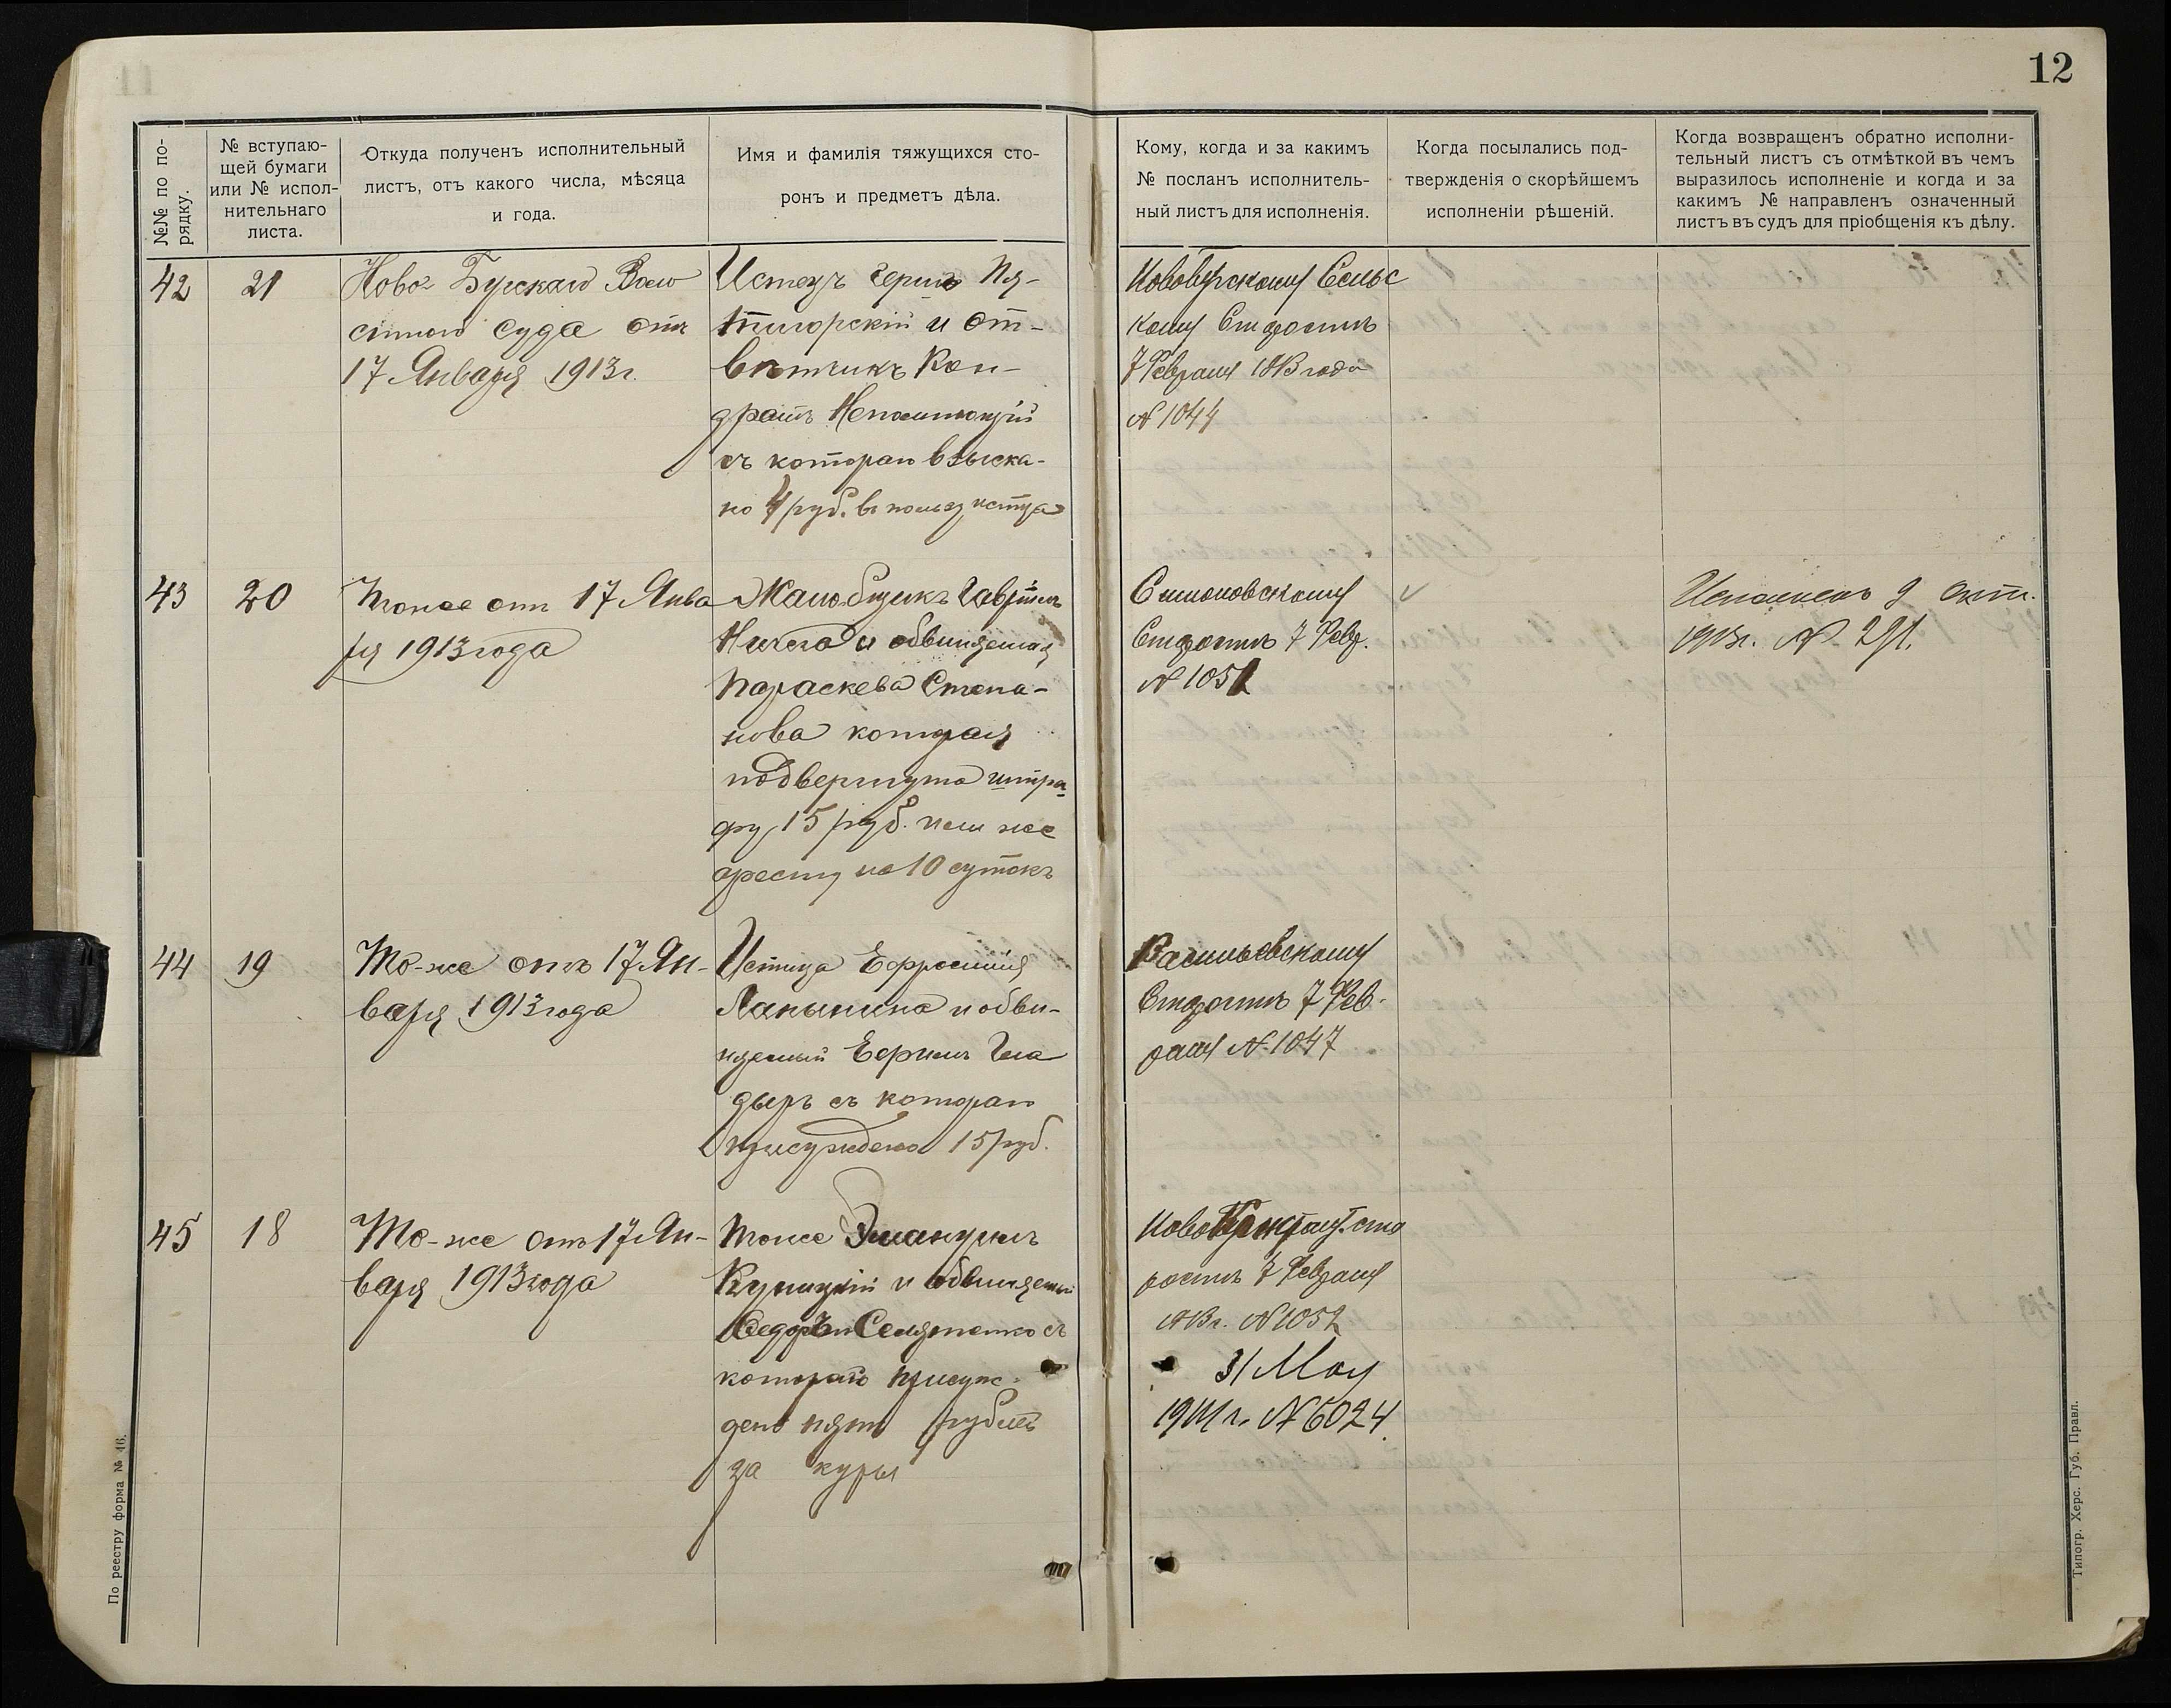 12
№№ по по-
рядку.
№ вступаю-
щей бумаги
или № испол-
нительнаго
листа.
Откуда полученъ исполнительный
листъ, отъ какого числа, мѣсяца
и года.
Имя и фамилія тяжущихся сто-
ронъ и предметъ дѣла.
Кому, когда и за какимъ
№ посланъ исполнитель-
ный листъ для исполненія.
Когда посылались под-
твержденія о скорѣйшемъ
исполненіи рѣшеній.
Когда возвращенъ обратно исполни-
тельный листъ съ отмѣткой въ чемъ
выразилось исполненіе и когда и за
какимъ № направленъ означенный
листъ въ судъ для пріобщенія къ дѣлу.
42
21
Ново-Бугскаго Воло
стного Суда отъ
17 Января 1913г.
Истецъ Герш Пя-
тигорскій и от-
вѣтчикъ Кон-
дратъ
съ котораго взыска-
но 4 руб. въ пользу истца
Новобугскому Сельс
кому Старостѣ
7 Февраля 1913 года
№ 1044
43
20
Тоже отъ 17 Янва
ря 1913 года
Жалобщикъ Гавріилъ
и обвиняемая
Параскева Степа-
нова которая
подвергнута штра-
фу 15 руб. или же
аресту на 10 сутокъ
Симоновскому
Старостѣ 7 Февр.
№ 1051
Исполненъ 9 окт.
1913г. № 291.
44
19
То-же отъ 17 Ян-
варя 1913 года
Истица Ефросинія
Лапынина и обви-
няемый Ефимъ Гла
дырь съ котораго
присуждено 15 руб.
Васильевскому
Старостѣ 7 Фев-
раля № 1047
45
18
То-же отъ 17 Ян-
варя 1913 года
Тоже Эмануилъ
Купицкій и обвиняемый
Федоръ съ
котораго присуж-
дено пять рублей
за куры
ста
ростѣ 7 Февраля
1913г. № 1052
31 Мая
1914 г. № 6024.
По реестру форма № 46.
Типогр. Херс. Губ. Правл.